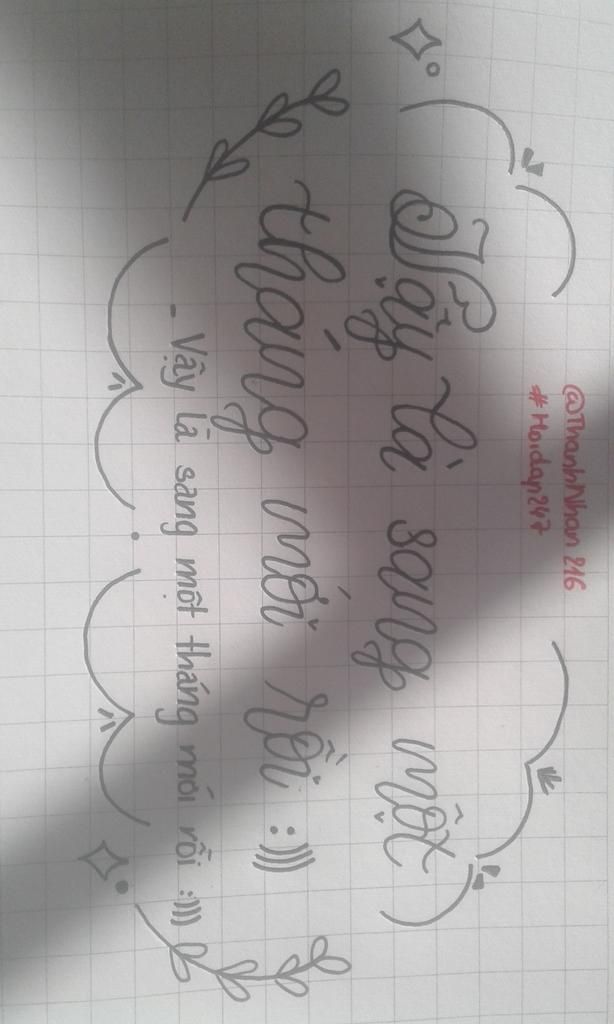 @ThanhNhan 216
#Hoidap247
Vậy là sang một
tháng mới rồi :)))
- Vậy là sang một tháng mới rồi :)))